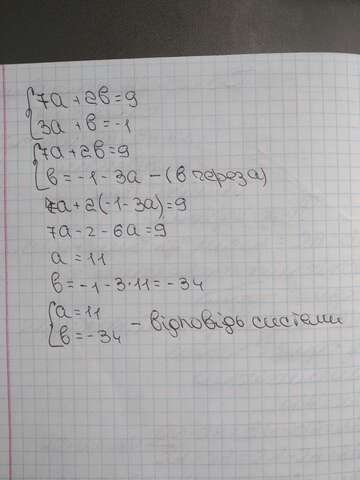 7a + 2в = 9
3a + в = -1
7a + 2в = 9
в = -1 - 3a - (в через a)
7a + 2(-1 - 3a) = 9
7a - 2 - 6a = 9
a = 11
в = -1 - 3·11 = -34
a = 11
в = -34 - відповідь системи